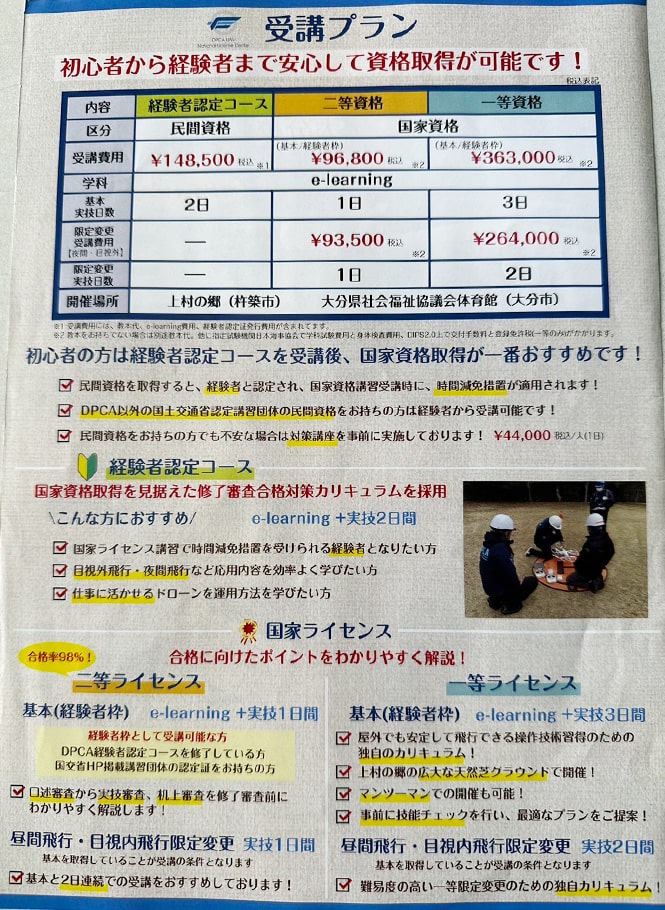 DPCA UAV
National License Center
受講プラン
初心者から経験者まで安心して資格取得が可能です！
税込表記
内容 経験者認定コース 二等資格 一等資格
区分 民間資格 国家資格
受講費用 ¥148,500税込 ※1 (基本/経験者枠) ¥96,800税込 ※2 (基本/経験者枠) ¥363,000税込 ※2
学科 e-learning
基本
実技日数 2日 1日 3日
限定変更
受講費用
【夜間・目視外】 — ¥93,500税込 ※2 ¥264,000税込 ※2
限定変更
実技日数 — 1日 2日
開催場所 上村の郷（杵築市） 大分県社会福祉協議会体育館（大分市）
※1 受講費用には、教本代、e-learning費用、経験者認定証発行費用が含まれてます。
※2 教本をお持ちでない場合は別途教本代。他に指定試験機関日本海事協会で学科試験費用と身体検査費用、DIPS2.0上で交付手数料と登録免許税(一等のみ)がかかります。
初心者の方は経験者認定コースを受講後、国家資格取得が一番おすすめです！
民間資格を取得すると、経験者と認定され、国家資格講習受講時に、時間減免措置が適用されます！
DPCA以外の国土交通省認定講習団体の民間資格をお持ちの方は経験者から受講可能です！
民間資格をお持ちの方でも不安な場合は対策講座を事前に実施しております！ ¥44,000 税込/人(1日)
経験者認定コース
国家資格取得を見据えた修了審査合格対策カリキュラムを採用
\こんな方におすすめ/ e-learning +実技2日間
国家ライセンス講習で時間減免措置を受けられる経験者となりたい方
目視外飛行・夜間飛行など応用内容を効率よく学びたい方
仕事に活かせるドローンを運用方法を学びたい方
国家ライセンス
合格に向けたポイントをわかりやすく解説！
合格率98%！
二等ライセンス
基本(経験者枠) e-learning +実技1日間
経験者枠として受講可能な方
DPCA経験者認定コースを修了している方
国交省HP掲載講習団体の認定証をお持ちの方
口述審査から実技審査、机上審査を修了審査前に
わかりやすく解説します！
昼間飛行・目視内飛行限定変更 実技1日間
基本を取得していることが受講の条件となります
基本と2日連続での受講をおすすめしております！
一等ライセンス
基本(経験者枠) e-learning +実技3日間
屋外でも安定して飛行できる操作技術習得のための
独自のカリキュラム！
上村の郷の広大な天然芝グラウンドで開催！
マンツーマンでの開催も可能！
事前に技能チェックを行い、最適なプランをご提案！
昼間飛行・目視内飛行限定変更 実技2日間
基本を取得していることが受講の条件となります
難易度の高い一等限定変更のための独自カリキュラム！